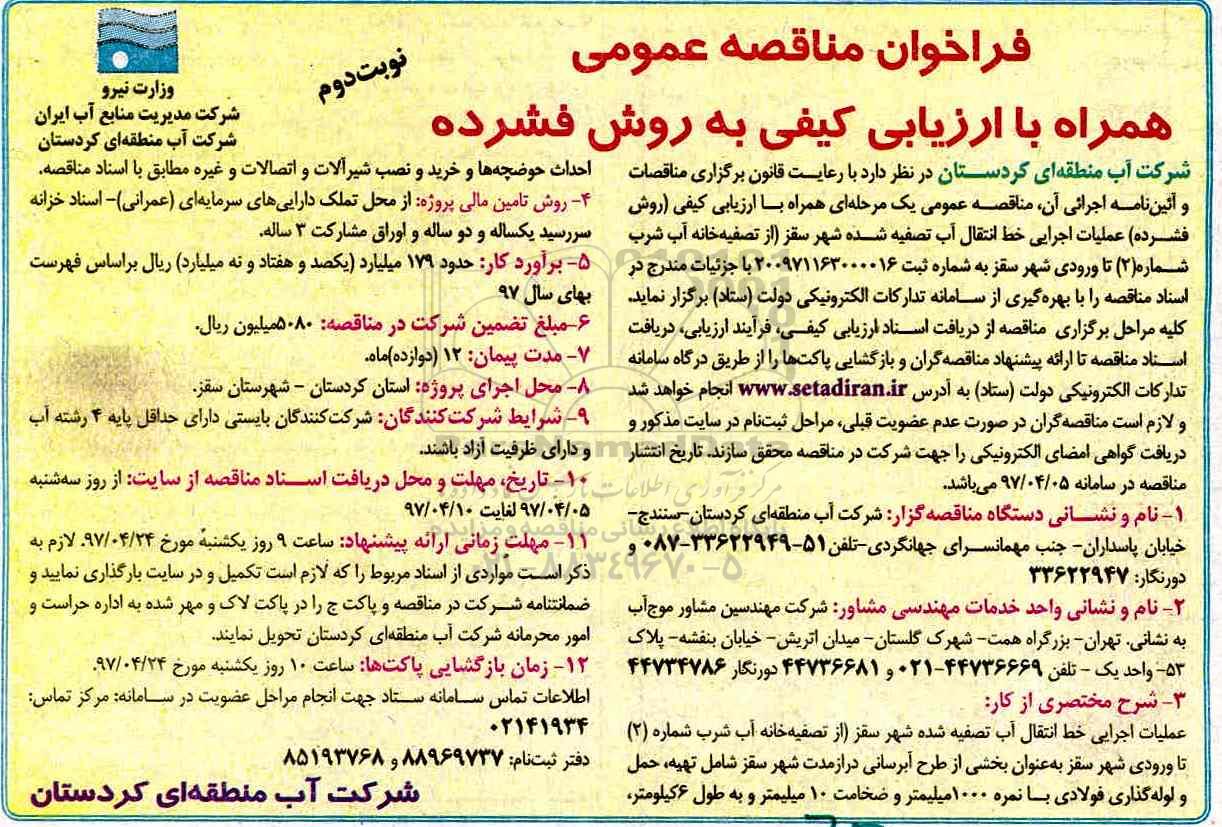 فراخوان مناقصه عمومی
همراه با ارزیابی کیفی به روش فشرده
نوبت دوم
وزارت نیرو
شرکت مدیریت منابع آب ایران
شرکت آب منطقه‌ای کردستان
شرکت آب منطقه‌ای کردستان در نظر دارد با رعایت قانون برگزاری مناقصات
و آئین‌نامه اجرائی آن، مناقصه عمومی یک مرحله‌ای همراه با ارزیابی کیفی (روش
فشرده) عملیات اجرایی خط انتقال آب تصفیه شده شهر سقز (از تصفیه‌خانه آب شرب
شماره(۲) تا ورودی شهر سقز به شماره ثبت ۲۰۰۹۷۱۱۶۳۰۰۰۰۱۶ با جزئیات مندرج در
اسناد مناقصه را با بهره‌گیری از سامانه تدارکات الکترونیکی دولت (ستاد) برگزار نماید.
کلیه مراحل برگزاری مناقصه از دریافت اسناد ارزیابی کیفی، فرآیند ارزیابی، دریافت
اسناد مناقصه تا ارائه پیشنهاد مناقصه‌گران و بازگشایی پاکت‌ها را از طریق درگاه سامانه
تدارکات الکترونیکی دولت (ستاد) به آدرس www.setadiran.ir انجام خواهد شد
و لازم است مناقصه‌گران در صورت عدم عضویت قبلی، مراحل ثبت‌نام در سایت مذکور و
دریافت گواهی امضای الکترونیکی را جهت شرکت در مناقصه محقق سازند. تاریخ انتشار
مناقصه در سامانه ۹۷/۰۴/۰۵ می‌باشد.
۱- نام و نشانی دستگاه مناقصه‌گزار: شرکت آب منطقه‌ای کردستان-سنندج-
خیابان پاسداران- جنب مهمانسرای جهانگردی-تلفن۵۱-۳۳۶۲۲۹۴۹-۰۸۷ و
دورنگار: ۳۳۶۲۲۹۴۷
۲- نام و نشانی واحد خدمات مهندسی مشاور: شرکت مهندسین مشاور موج‌آب
به نشانی. تهران- بزرگراه همت- شهرک گلستان- میدان اتریش- خیابان بنفشه- پلاک
۵۳- واحد یک - تلفن ۴۴۷۳۶۶۶۹-۰۲۱ و ۴۴۷۳۶۶۸۱ دورنگار ۴۴۷۳۴۷۸۶
۳- شرح مختصری از کار:
عملیات اجرایی خط انتقال آب تصفیه شده شهر سقز (از تصفیه‌خانه آب شرب شماره (۲)
تا ورودی شهر سقز به‌عنوان بخشی از طرح آبرسانی درازمدت شهر سقز شامل تهیه، حمل
و لوله‌گذاری فولادی با نمره ۱۰۰۰میلیمتر و ضخامت ۱۰ میلیمتر و به طول ۶کیلومتر،
احداث حوضچه‌ها و خرید و نصب شیرآلات و اتصالات و غیره مطابق با اسناد مناقصه.
۴- روش تامین مالی پروژه: از محل تملک دارایی‌های سرمایه‌ای (عمرانی)- اسناد خزانه
سررسید یکساله و دو ساله و اوراق مشارکت ۳ ساله.
۵- برآورد کار: حدود ۱۷۹ میلیارد (یکصد و هفتاد و نه میلیارد) ریال براساس فهرست
بهای سال ۹۷
۶-مبلغ تضمین شرکت در مناقصه: ۵۰۸۰میلیون ریال.
۷- مدت پیمان: ۱۲ (دوازده)ماه.
۸- محل اجرای پروژه: استان کردستان - شهرستان سقز.
۹- شرایط شرکت‌کنندگان: شرکت‌کنندگان بایستی دارای حداقل پایه ۴ رشته آب
و دارای ظرفیت آزاد باشند.
۱۰- تاریخ، مهلت و محل دریافت اسناد مناقصه از سایت: از روز سه‌شنبه
۹۷/۰۴/۰۵ لغایت ۹۷/۰۴/۱۰
۱۱- مهلت زمانی ارائه پیشنهاد: ساعت ۹ روز یکشنبه مورخ ۹۷/۰۴/۲۴. لازم به
ذکر است مواردی از اسناد مربوط را که لازم است تکمیل و در سایت بارگذاری نمایید و
ضمانتنامه شرکت در مناقصه و پاکت ج را در پاکت لاک و مهر شده به اداره حراست و
امور محرمانه شرکت آب منطقه‌ای کردستان تحویل نمایند.
۱۲- زمان بازگشایی پاکت‌ها: ساعت ۱۰ روز یکشنبه مورخ ۹۷/۰۴/۲۴.
اطلاعات تماس سامانه ستاد جهت انجام مراحل عضویت در سامانه: مرکز تماس:
۰۲۱۴۱۹۳۴
دفتر ثبت‌نام: ۸۸۹۶۹۷۳۷ و ۸۵۱۹۳۷۶۸
شرکت آب منطقه‌ای کردستان